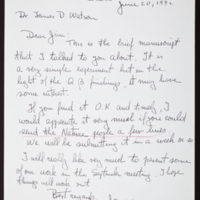 June 20, 199
Dr. James D Watson
Dear Jim:
This is the brief manuscript
that I talked to you about. It is
a very simple experiment but in the
light of the QB findings, it may have
some interest.
If you find it O.K and timely, I
would appreciate it very much if you could
send the Nature people a few lines.
We will be submitting it in a week or so
I will really like very much to present some
of our work in the September meeting, I hope
things will work out
Best regards,